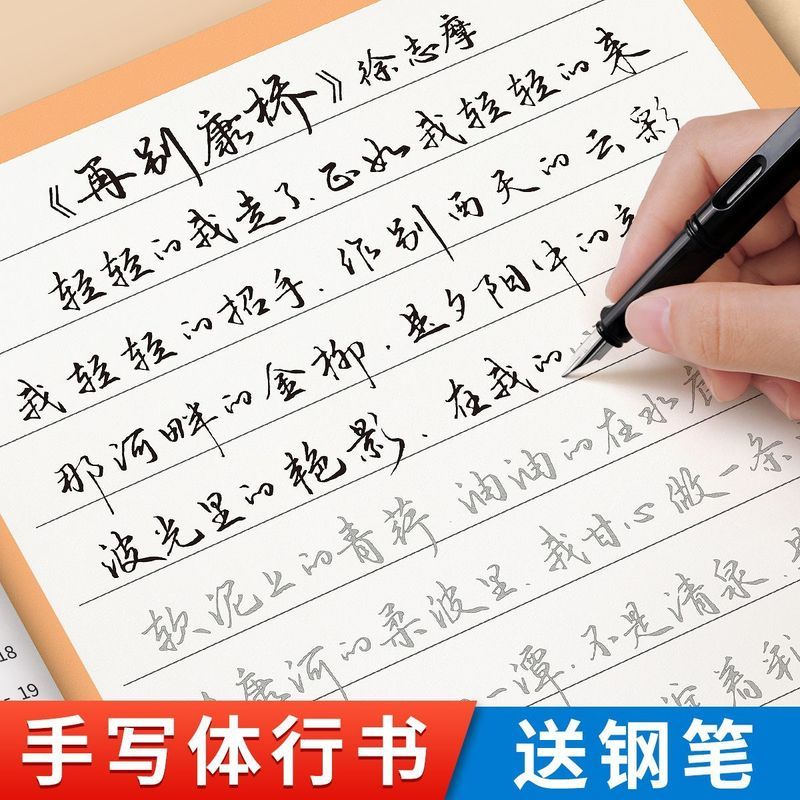 《再别康桥》徐志摩
轻轻的我走了.正如我轻轻的来
我轻轻的招手.作别西天的云彩
那河畔的金柳.是夕阳中的
波光里的艳影.在我的
软泥上的青荇 油油的在水底
康河的柔波里.我甘心做一条
一潭.不是清泉.是
淀着彩
18
19
手写体行书
送钢笔